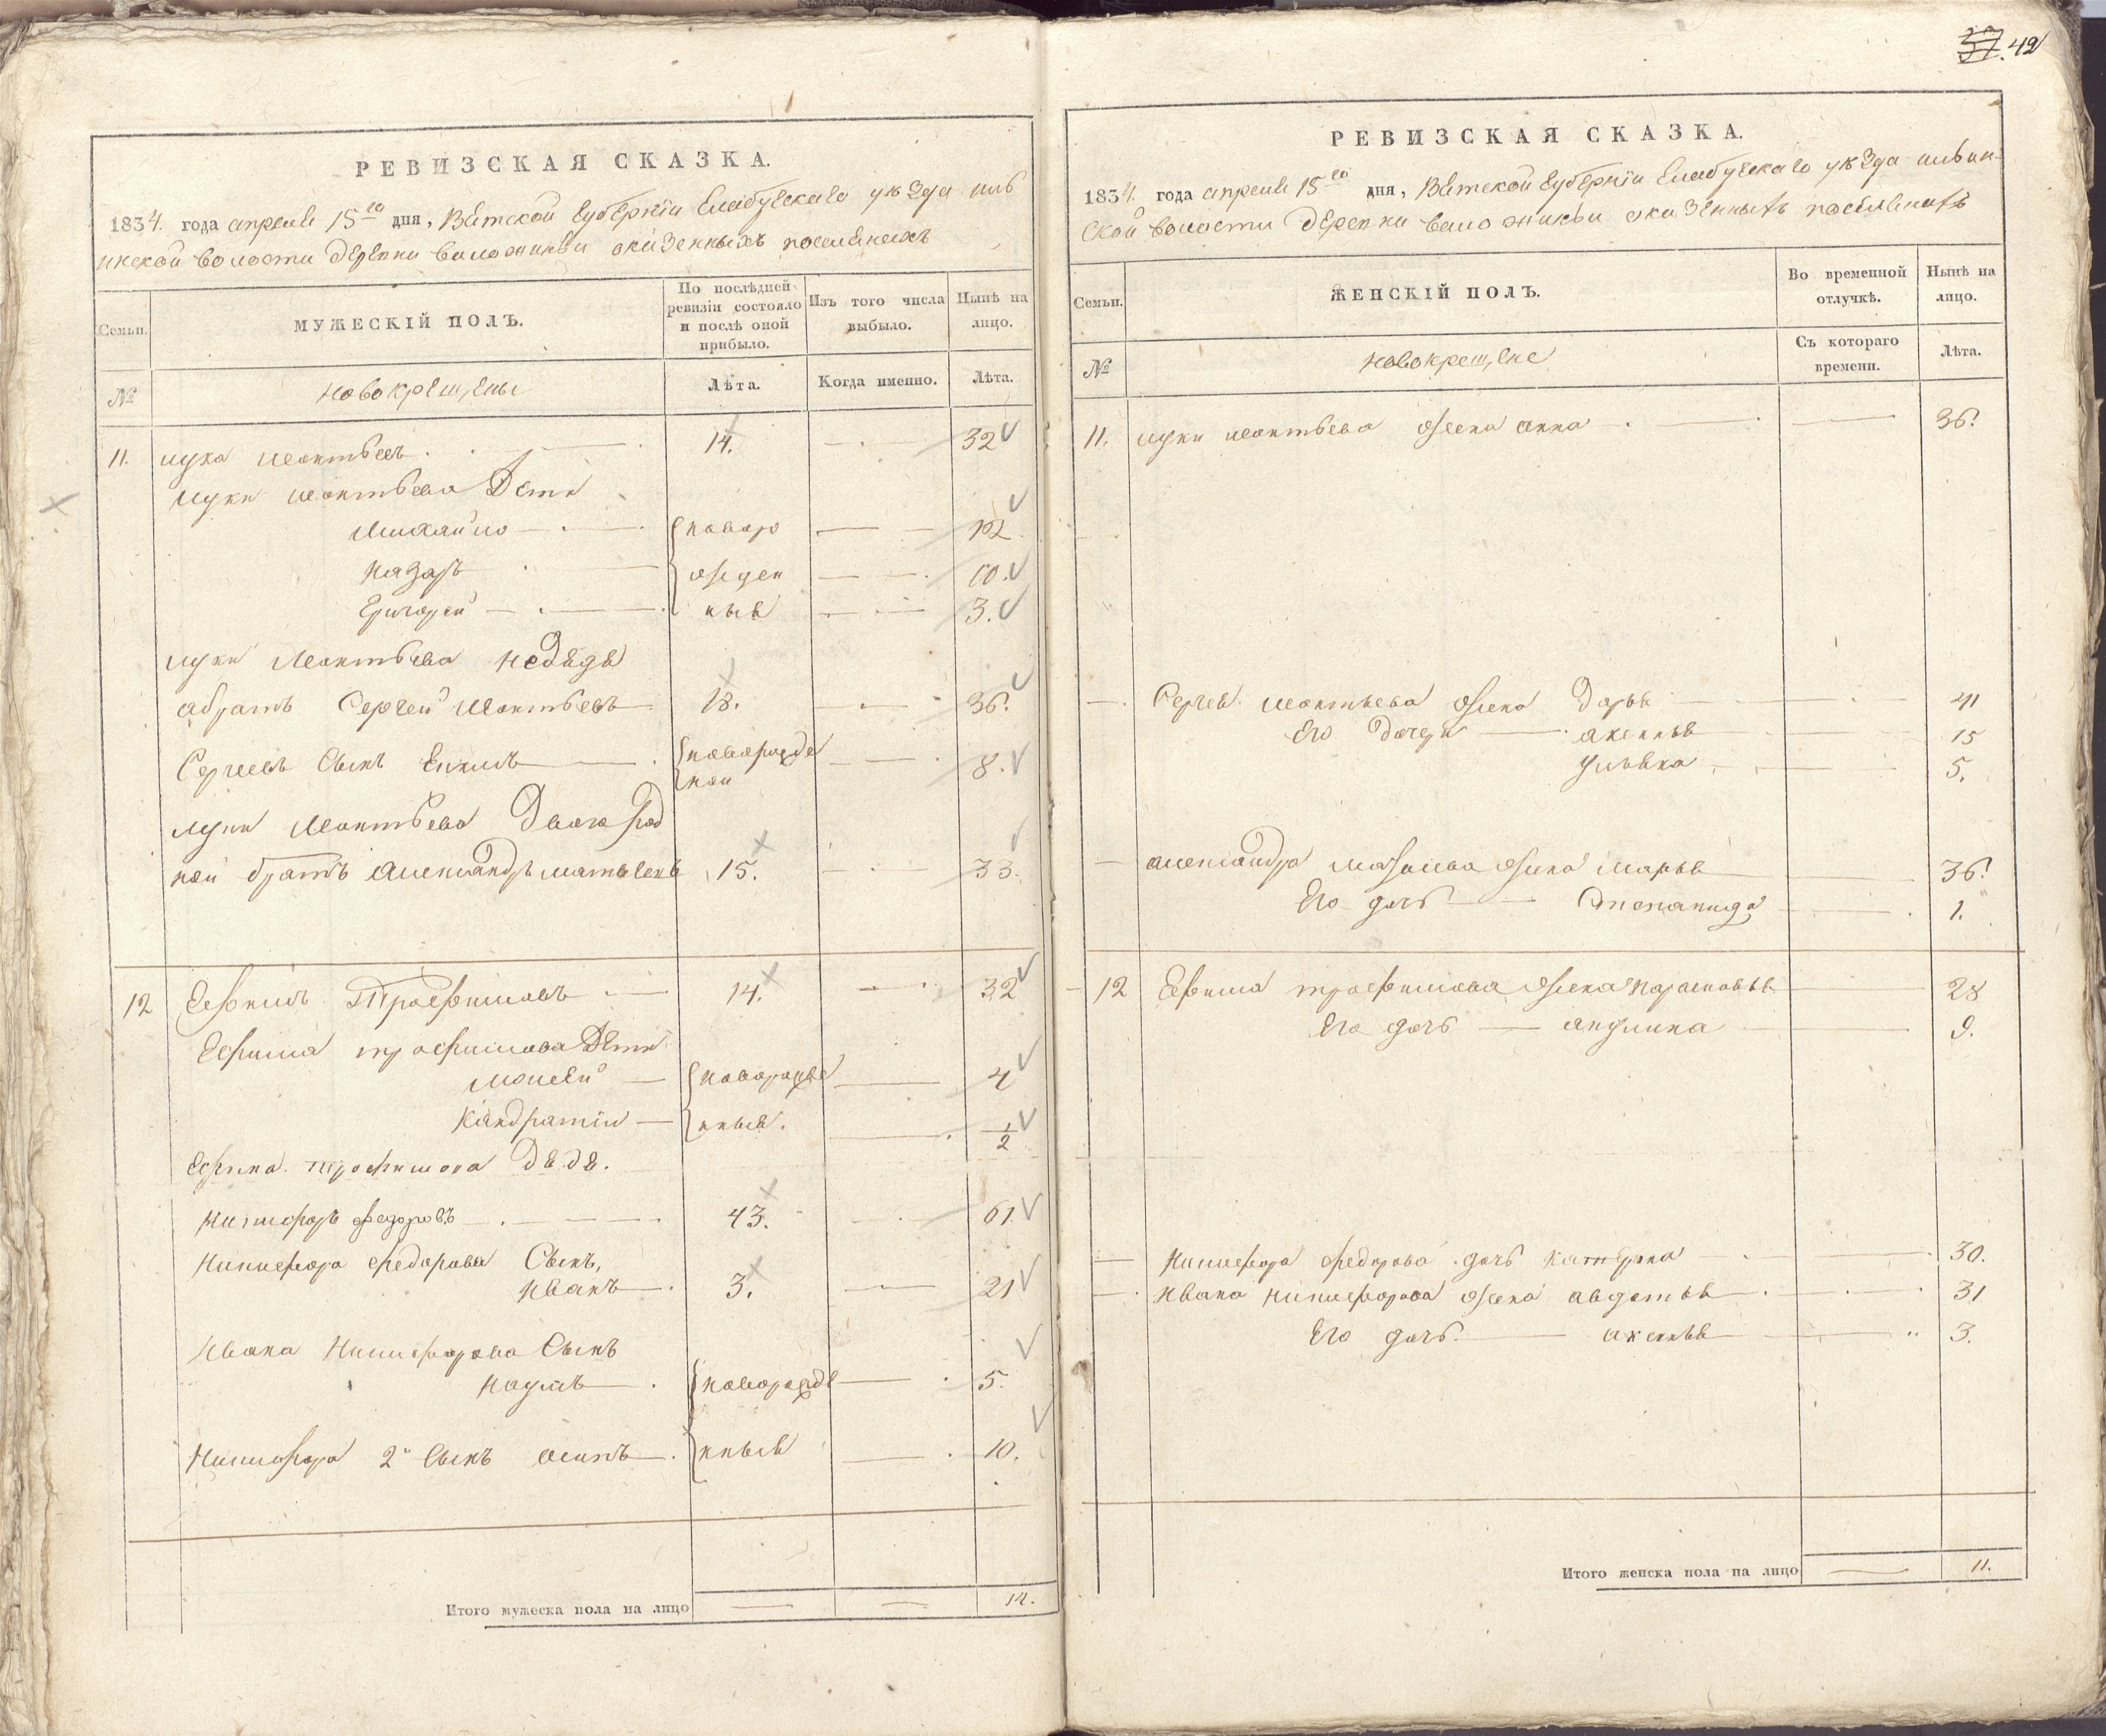 42
РЕВИЗСКАЯ СКАЗКА.
1834. года апреля 15го дня, Вятской губернiи Елабугскаго уѣзда илв
инской волости деревни о казенныхъ поселянехъ
Семьи.
МУЖЕСКIЙ ПОЛЪ.
По послѣдней ревизiи состояло и послѣ оной прибыло.
Изъ того числа выбыло.
Нынѣ на лицо.
№
новокрещены
Лѣта.
Когда именно.
Лѣта.
11. лука леонтьевъ 14. 32
луки леонтьева дети
Михайло новоро 12
назаръ жден 10.
Григорей ныя 3.
луки леонтьева
абратъ Сергей леонтьевъ 18. 36.
Сергеевъ сынъ новорожде 8.
ной
луки леонтьева двоюрод
ной братъ александръ 15. 33.
12 Ефимъ Трофимовъ 14. 32
Ефима трофимова дети
новорожде 4
Кандратiй нныя. 1/2
Ефима трофимова дядя.
никифоръ федоровъ 43. 61.
Никифора федорова сынъ,
иванъ 3. 21
Ивана Никифорова сынъ
наумъ новорожде 5.
Никифора 2й сынъ осипъ нныя 10.
Итого мужеска пола на лицо 14.
РЕВИЗСКАЯ СКАЗКА.
1834. года апреля 15го дня, Вятской губернiи Елабугскаго уѣзда илвин-
ской волости деревни о казенныхъ поселянехъ
Семьи.
ЖЕНСКIЙ ПОЛЪ.
Во временной отлучкѣ.
Нынѣ на лицо.
№
новокрещене
Съ котораго времени.
Лѣта.
11. луки леонтьева жена анна 36.
Сергея леонтьева жена дарья 41
Его дочери аксинья 15
ульяна 5.
александра жена марья 36.
Его дочь Степанида 1.
12 Ефима трофимова жена парасковья 28
Его дочь акулина 9.
Никифора федорова дочь катерина 30.
Ивана никифорова жена авдотья 31
Его дочь аксинья 3.
Итого женска пола на лицо 11.